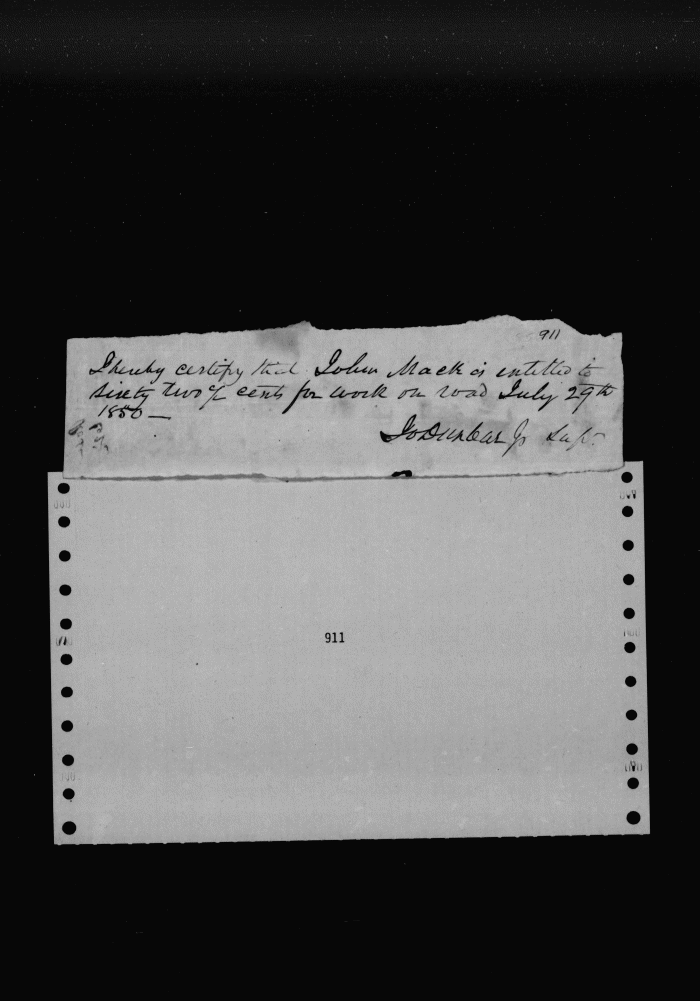 911
I hereby certify that John Mack is entitled to
sixty two cents for work on road July 29th
1850 —
Jo Dunbar Jr Supt
911